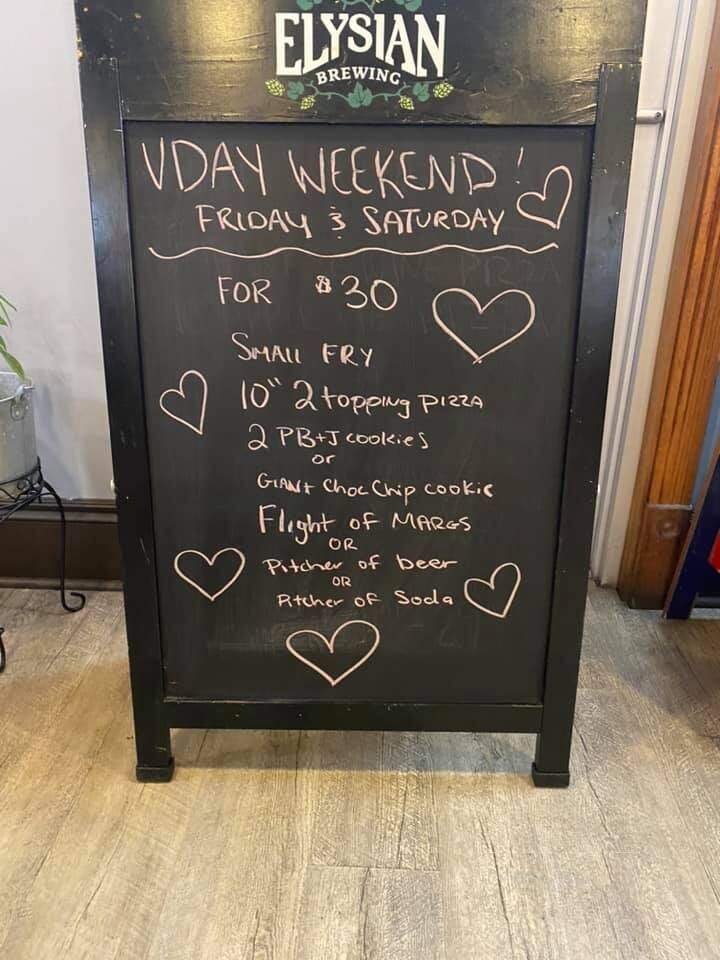 ELYSIAN
BREWING
VDAY WEEKEND!
FRIDAY & SATURDAY
FOR $30
SMALL FRY
10" 2 topping PIZZA
2 PB+J cookies
or
GIANT Choc Chip cookie
Flight of MARGS
OR
Pitcher of beer
OR
Pitcher of Soda